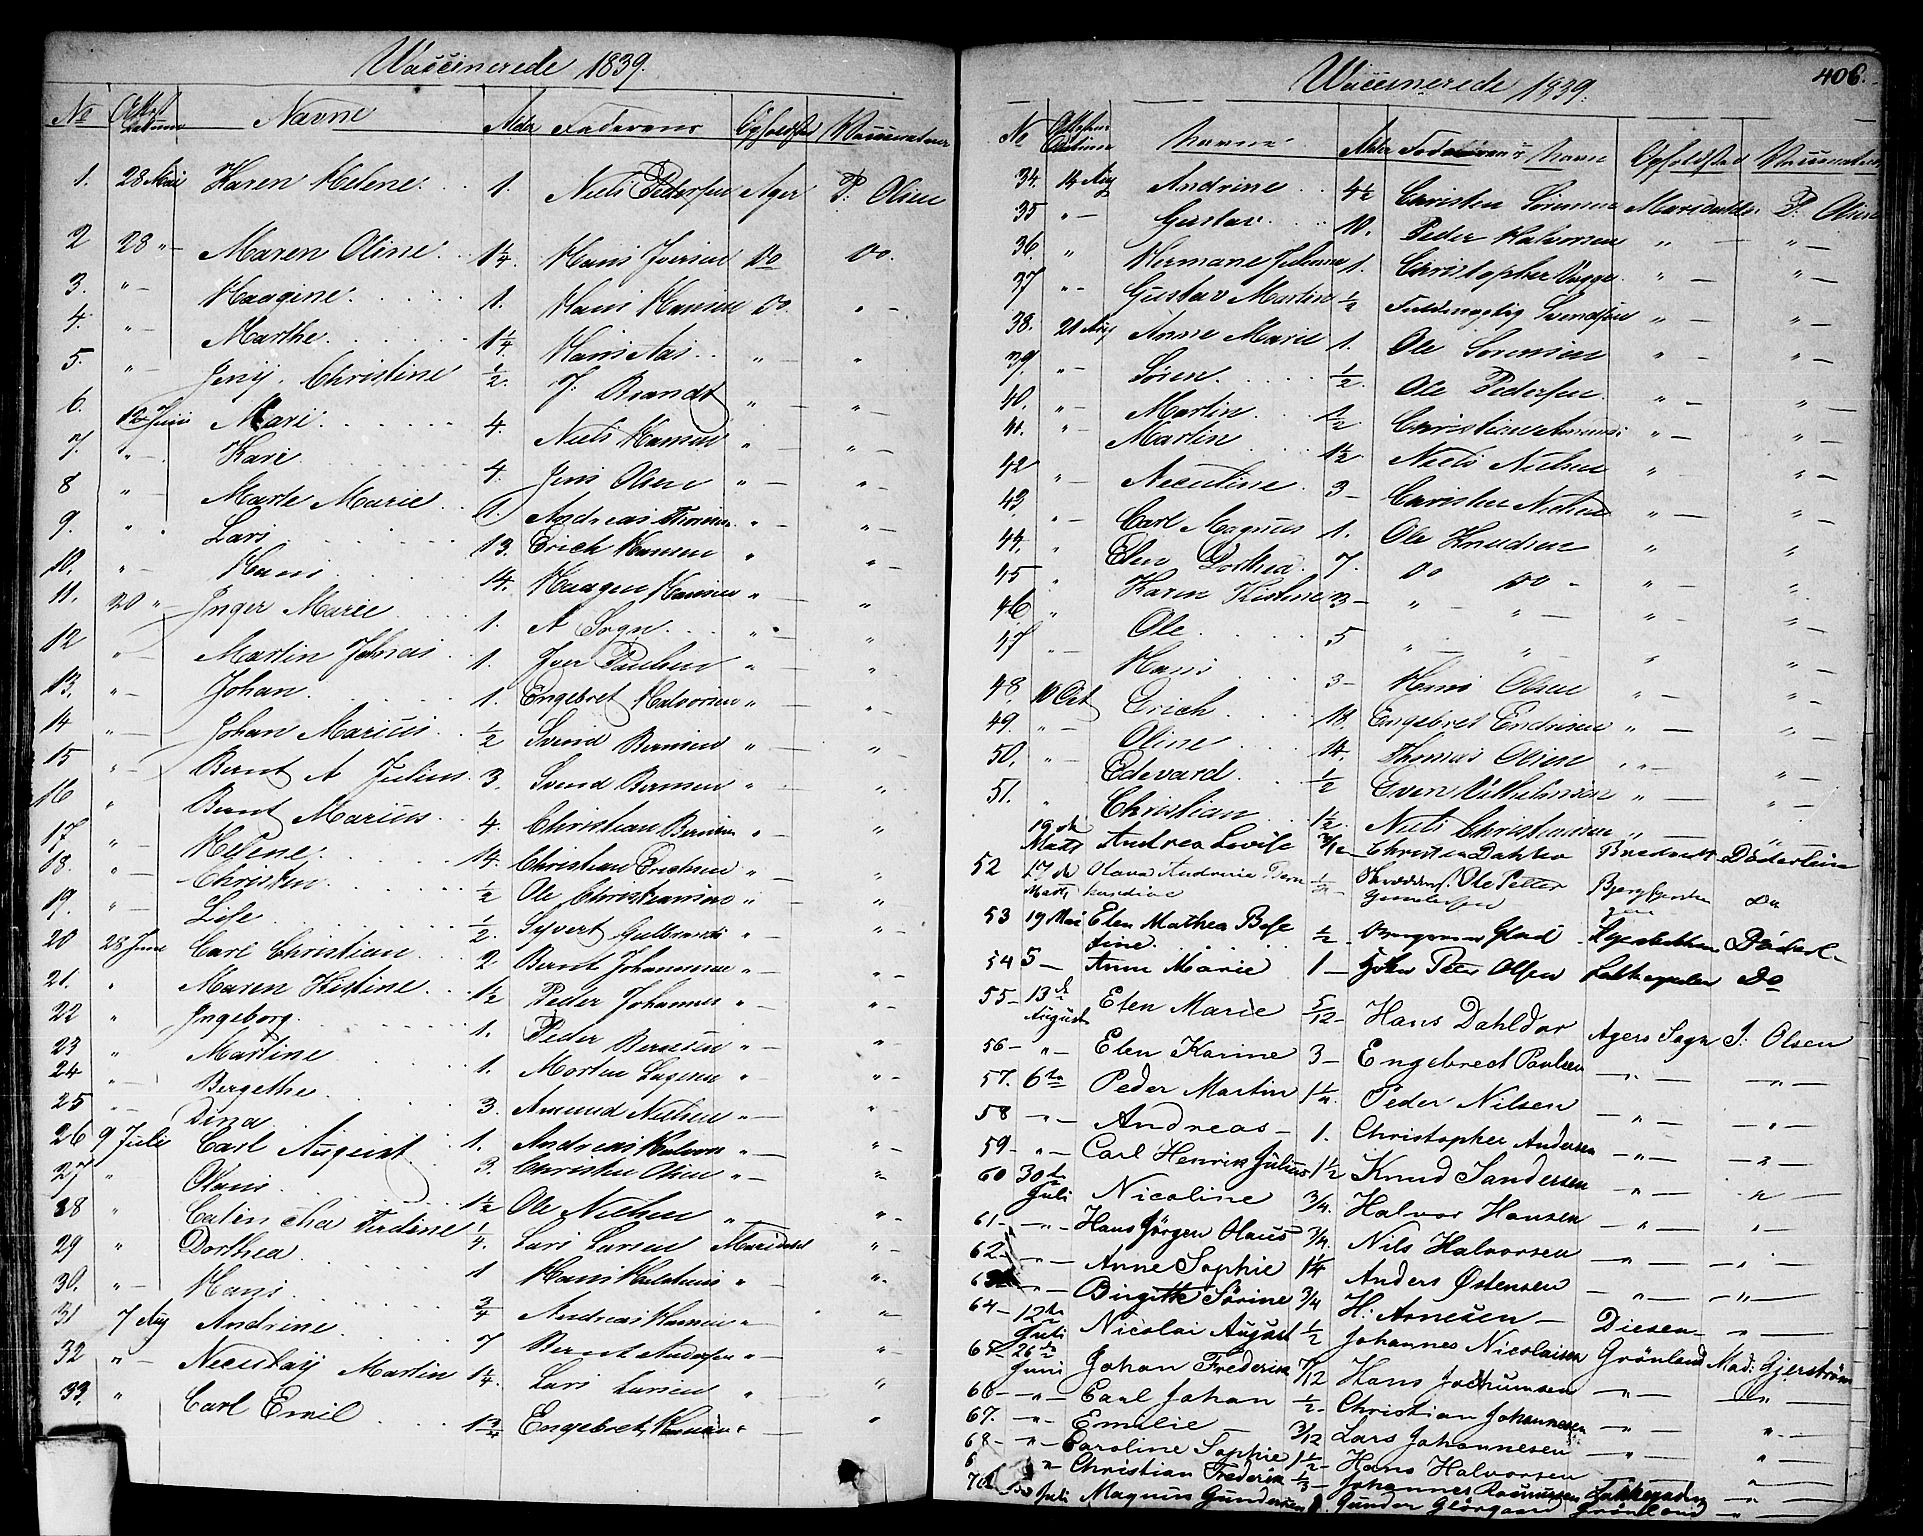 Vaccinerede 1839.
No Attest Datum Navne Alder Faderens Opholdsted Vaccinateur
1. 28 Mai Karen Helene 1. Niels Pedersen Ager P. Olsen
2 28 " Maren Oline 1¼. Hans Iversen Do Do.
3. " Haagine 1. Hans Hansen Do. "
4. " Marthe. 1¼. Hans Aas " "
5. " Jenÿ Christine ½. J. Brandt " "
6. 12 Juni Mari 4. Niels Hansen " "
7. " Kari 4. Jens Olsen " "
8 " Marte Marie 1. Andreas " "
9. " Lars 13. Erich Hansen " "
10. " Hans 14. Haagen Hansen " "
11. 20 " Inger Marie 1. A Sogn " "
12 " Martin Johnas 1. Iver Paulsen " "
13. " Johan. 1. Engebret Halvorsen " "
14 " Johan Marius ½ Svend Bernsen " "
15 " Bernt A Julius 3. Svend Bernsen " "
16 " Bernt Marius 4. Christian Bernsen " "
17 " Helene. 14. Christian Erichsen " "
18. " Christen ½ Ole Christiansen " "
19. " Lise ½. Syvert Gulbrands " "
20 28 June Carl Christian 2 Bernt Johannesen " "
21. " Maren Kistine 1½ Peder Johannes " "
22 " Ingeborg. 1. Peder Bernsen " "
23 " Martine 1. Morten " "
24 " Bergethe. 3. Amund Nielsen " "
25 " Dina 1. Andreas Halvors " "
26 9 Juli Carl August 3. Christen Olsen " "
27 " Olaus 1½ Ole Nielsen " "
28 " Catincha Ferdine ¼. Lars Larsen Maridal "
29 " Dorthea 1 Hans " "
30. " Hans ¾ Andreas Hansen " "
31 7 Aug Andrine 7 Bernt Andersen " "
32 " Neculaÿ Martin 1¼. Lars Larsen " "
33. " Carl Emil 1¾ Engebret Hansen " "
406.
Vaccinerede 1839.
No Attestens Datum Navne Alder Faderens Navn Opholdsted Vaccinateur
34. 14 Aug Andrine 4½ Christen Sörensen Maridalen P. Olsen
35 " Gustav 10. Peder Halvorsen " "
36. " Hermane Johanne 1. Christopher Bugge " "
37 " Gustav Martin ½ Svendsen " "
38. 21 Aug Anne Marie 1. Ole Sörensen " "
39. " Sören ½. Ole Pedersen " "
40. " Martin ½. Christian Amunds " "
41. " Martin 1½ Niels Nielsen " "
42 " Neculine 3 Christen Nielsen " "
43. " Carl Magnus 1. Ole Knudsen " "
44. " Elen Dorthea 7. Do Do " "
45 " Karen Kistine 3 " " " "
46 " Ole 5 " " " "
47 " Hans 3 Hans Olsen " "
48. 10 Oct Erich 18. Engebret Endresen " "
49. " Oline 14. Thomas Olsen " "
50. " Edevard ½ Even Vilhelmsen " "
51. " Christian ½. Niels Christiansen " "
19 de Marts Andrea Lovise Christen Dahlbo Döderlein
52 17 de Marts Olava Andrine Ole Petter Gundersen Do
53 19 Mai Elen Mathea Bese ½ Glad
tine
54 5 Anne Marie 1 John Peter Olsen Do
55 13 de August Elen Marie 5/12 Hans Dahldor Agers Sogn P. Olsen
56 " Elen Karine 3 Engebrect Paulsen " "
57. 6te Peder Martin 1¼ Peder Nilsen " "
58 " Andreas 1. Christopher Andersen " "
59. " Carl Henrik Julius 1½ Knud Sandersen " "
60 30te Juli Nicoline ¾. Halvor Hansen " "
61 " Hans Jörgen Olaus ¾. Nils Halvorsen " "
62. " Anne Sophie 1¼ Anders Østensen " "
" Birgitte Sörine ¾ H. Arnesen " "
64 12te Juli Nicolai August ½ Johannes Nicolaisen Diesen "
65 26de Juni Johan Frederik 7/12 Hans Jochumsen Grönland Mad. Gjerström
66 " Carl Johan ½. Christian Johannesen " "
67. " Emilie 3/12 Lars Johannesen " "
68 " Caroline Sophie 1½ Hans Halvorsen " "
6 " Christian Frederik ⅓ Johannes Rasmussen "
70 Juli Magnus Gundersen Gunder Glörgaard Grönland "